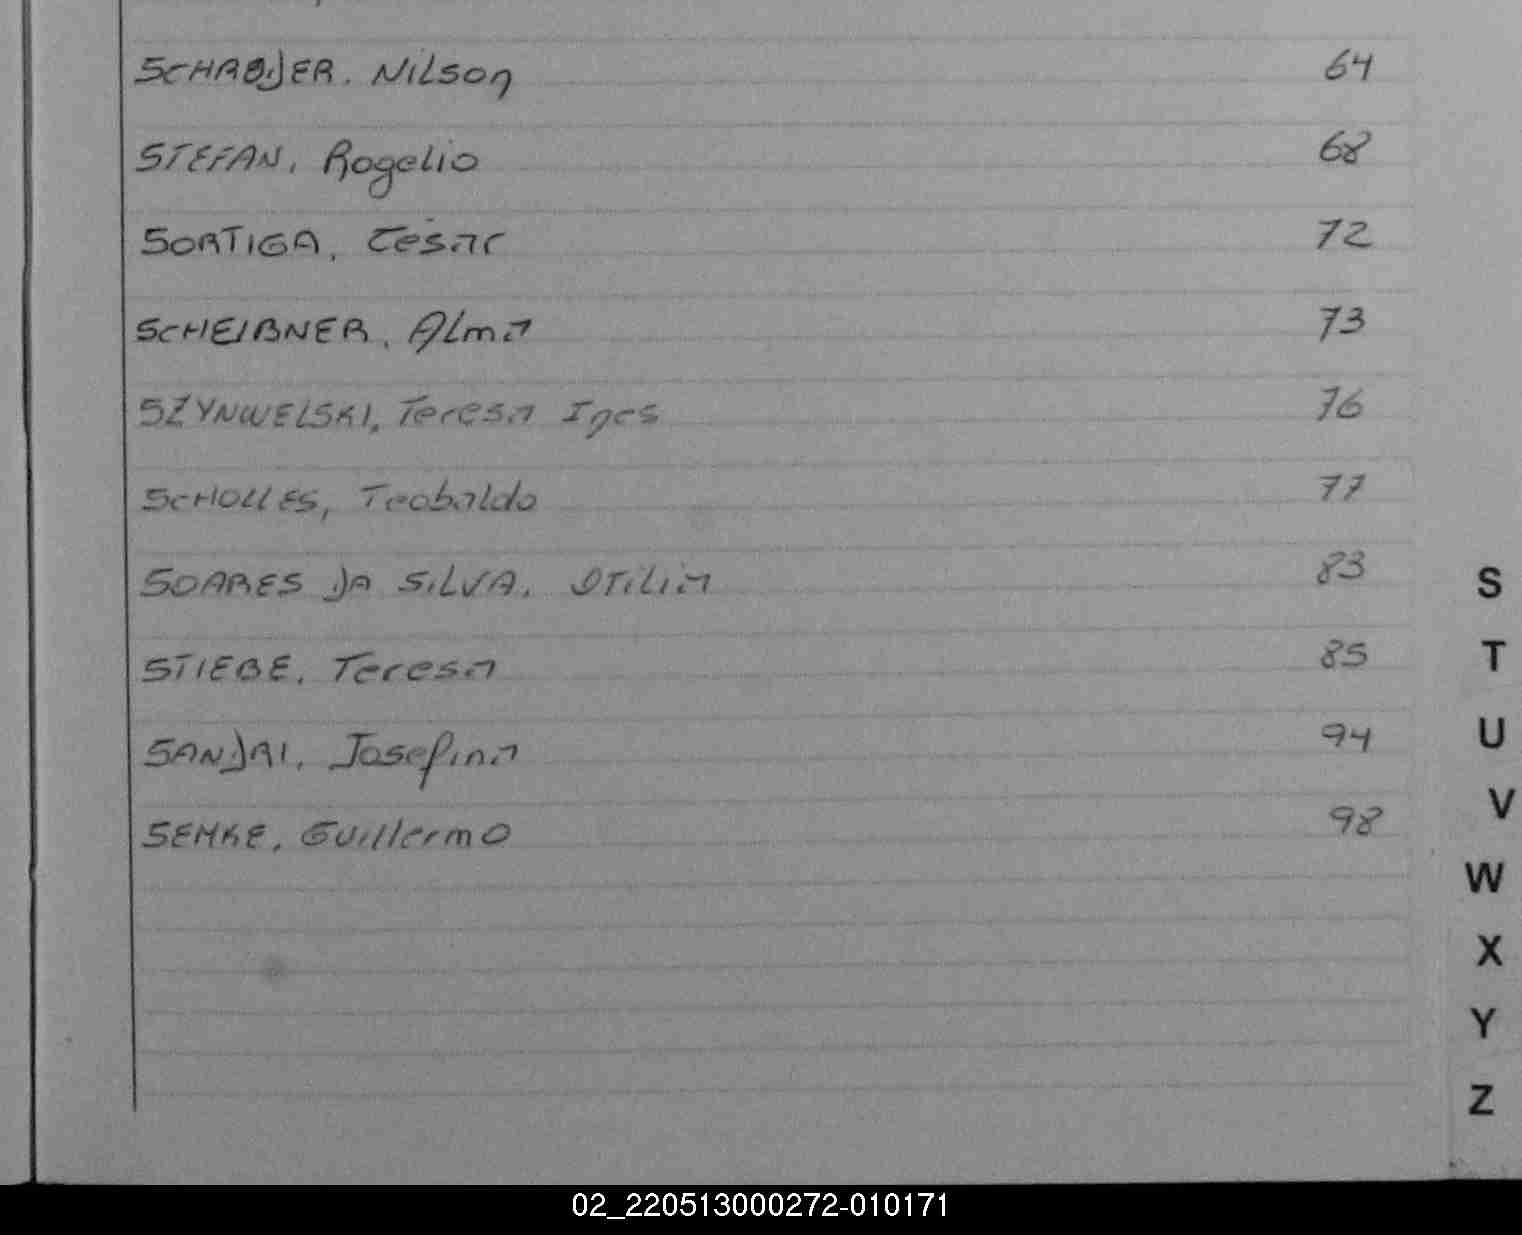 SCHRODER. Nilson 64
STEFAN, Rogelio 68
SORTIGA, César 72
SCHEIBNER, Alma 73
SZYNWELSKI, Teresa Ines 76
SCHOLLES, Teobaldo 77
SOARES DA SILVA, Otilia 83
STIEBE, Teresa 85
SANDRI, Josefina 94
SEMKE, Guillermo 98
S
T
U
V
W
X
Y
Z
02_220513000272-010171